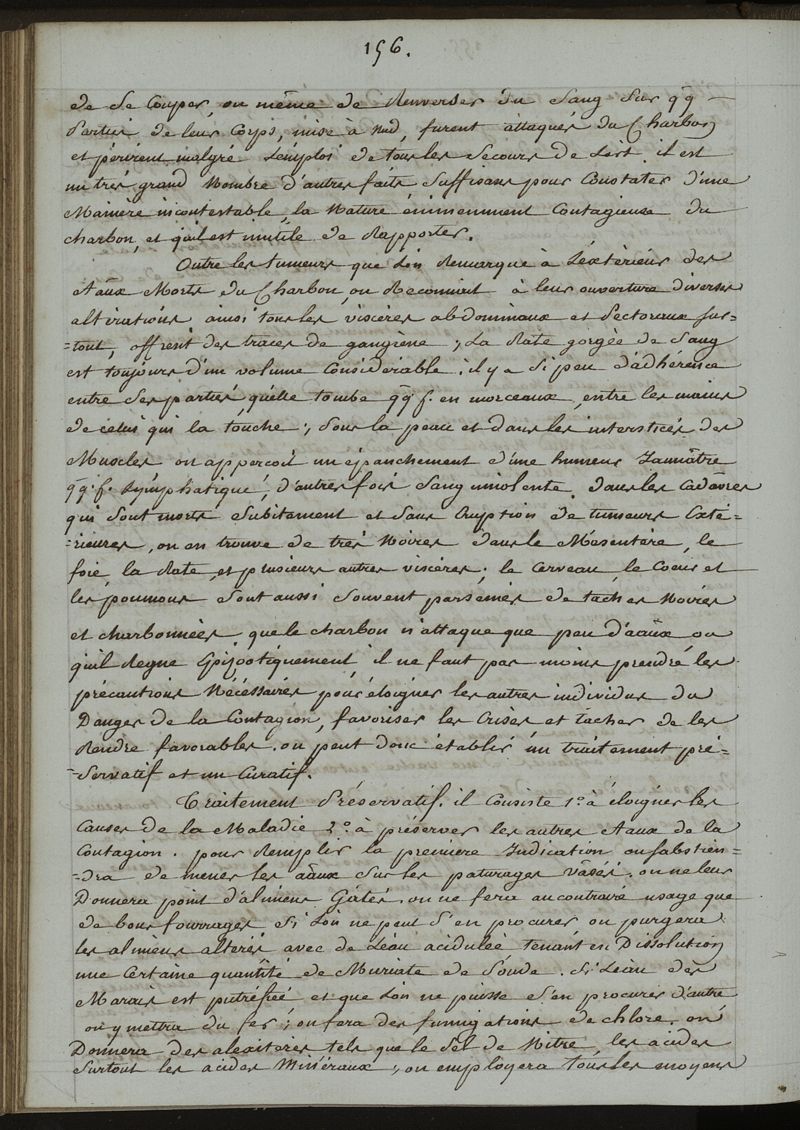 156.
de se Couper, ou même de Renverser du Sang Sur qq
Partie de leur Corps, mise à nud, furent attaqués du Charbon
et périrent malgré L'emploi de tous les Secours de L'art. il est
un très grand Nombre d'autres faits Suffisans pour Constater d'une
Manière incontestable, la Nature éminemment Contagieuse du
charbon, et qu'il est inutile de Rapporter.
Outre les tumeurs que L'on Remarque à L'extérieur des
Aãux Morts du Charbon, on Reconnait à leur ouverture diverses
altérations ainsi tous les viscères abdominaux et Pectoraux sur=
=tout, offrent des traces de gangrène; La Rate gorgée de Sang
est toujours d'un volume Considérable; il y a Si peu d'adhérence
entre Ses parties, qu'elle tombe qq.f. en morceaux, entre les mains
de celui qui la touche; Sous la peau et dans les interstices des
Muscles on apperçoit un épanchement d'une humeur Jaunâtre
qq.f. Lymphatique, d'autres fois Sanguinolente. Dans les Cadavres
qui Sont morts Subitement et Sans Eruption de tumeurs Exté=
=rieures, on en trouve de très Noires dans le Mésentère, le
foie, la Rate, et plusieurs autres viscères; le Cerveau, le Coeur et
les poumons Sont aussi Souvent parsemés de taches Noires
et charbonnées. que le charbon n'attaque que peu d'aãux ou
qu'il Règne Epizootiquement, il ne faut pas moins prendre les
précautions Nécessaires pour éloigner les autres individus du
Danger de la Contagion, favoriser les Crises et tacher de les
Rendre favorables. on peut donc établir un traitement pré=
=Servatif et un Curatif.
Traitement Préservatif. il Consiste 1.º à éloigner les
Causes de la Maladie 2.º à préserver les autres Aaux de la
Contagion. pour Remplir la première Indication on S'abstien=
=dra de mener les aãux Sur les paturages vâsés. on ne leur
Donnera point d'alimens Gâtés. on ne fera au contraire usage que
de bons fourrages Si L'on ne peut S'en procurer on purgera
les alimens altérés avec de L'eau acidulée tenant en Dissolution
une Certaine quantité de Muriate de Soude. Si L'eau des
Marais est putréfiée et que L'on ne puisse S'en procurer d'autre
on y mettra du fer; on fera des fumigations de chlore, on
Donnera des alexitères tels que le Sel de Nitre, les acides
Surtout les acides Minéraux; on employera tous les moyens